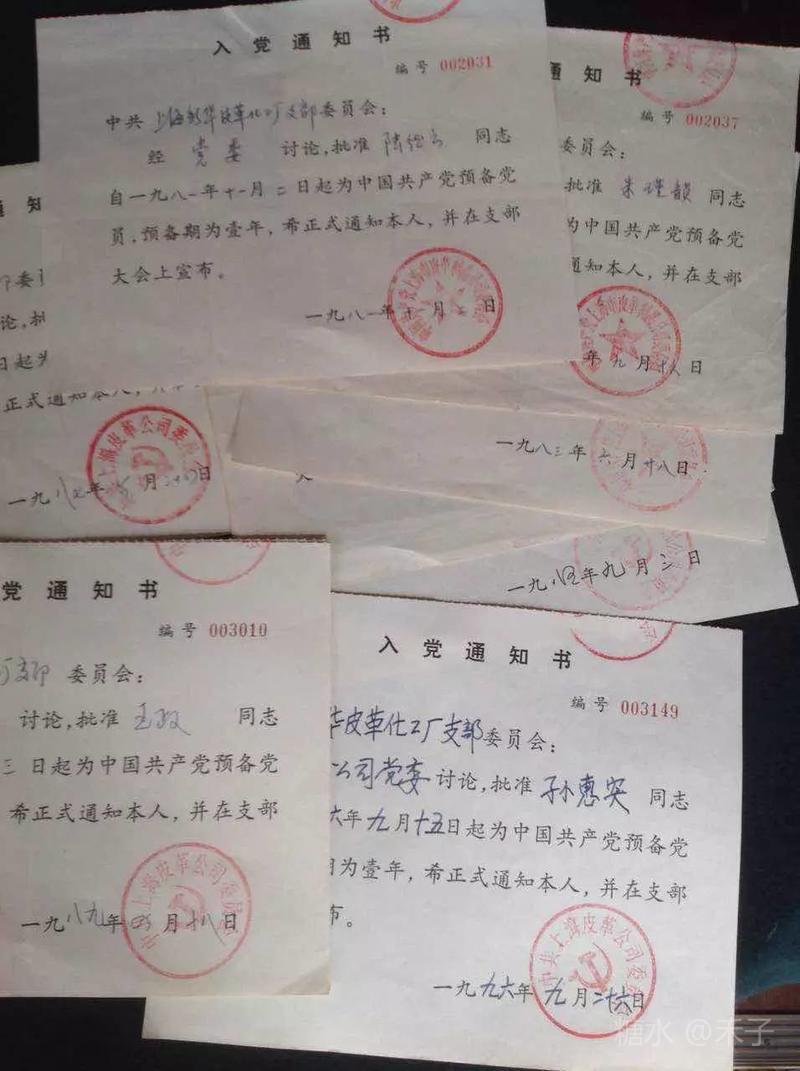 入党通知书
编号 002031
中共上海新华皮革化工厂支部委员会：
经 党委 讨论，批准 同志
自一九八一年十一月二日起为中国共产党预备党
员，预备期为壹年，希正式通知本人，并在支部
大会上宣布。
一九八一年十一月二日
通知书
编号 002037
委员会：
批准 朱瑾韻 同志
为中国共产党预备党
通知本人，并在支部
年九月十八日
通知
委
论，批
日起为
正式通知本人，
上海皮革公司委员会
一九八七年 月二十 日
一九八三年六月十八日
一九八四年九月三日
党通知书
编号 003010
支部 委员会：
讨论，批准 同志
三日起为中国共产党预备党
希正式通知本人，并在支部
中共上海皮革公司委员会
一九八九年四月十八日
入党通知书
编号 003149
华皮革化工厂支部委员会：
公司党委讨论，批准孙惠英同志
六年九月十五日起为中国共产党预备党
为壹年，希正式通知本人，并在支部
布。
中共上海皮革公司委员会
一九九六年九月二十六日
糖水 @禾子